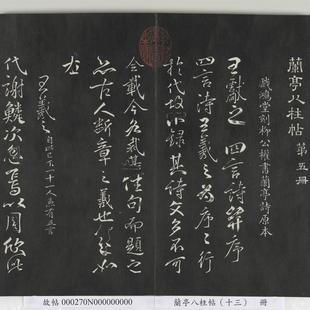 蘭亭八柱帖 第五冊
戲鴻堂刻柳公權書蘭亭詩原本
王獻之四言詩并序
四言詩王羲之為序序行
於代故不錄其詩文多不可
全載今各裁其佳句而題之
亦古人斷章之義也
左
王羲之 自此已下十一人亦有五言
代謝鱗次忽焉以周欣此
故帖 000270N000000000
蘭亭八柱帖(十三) 冊